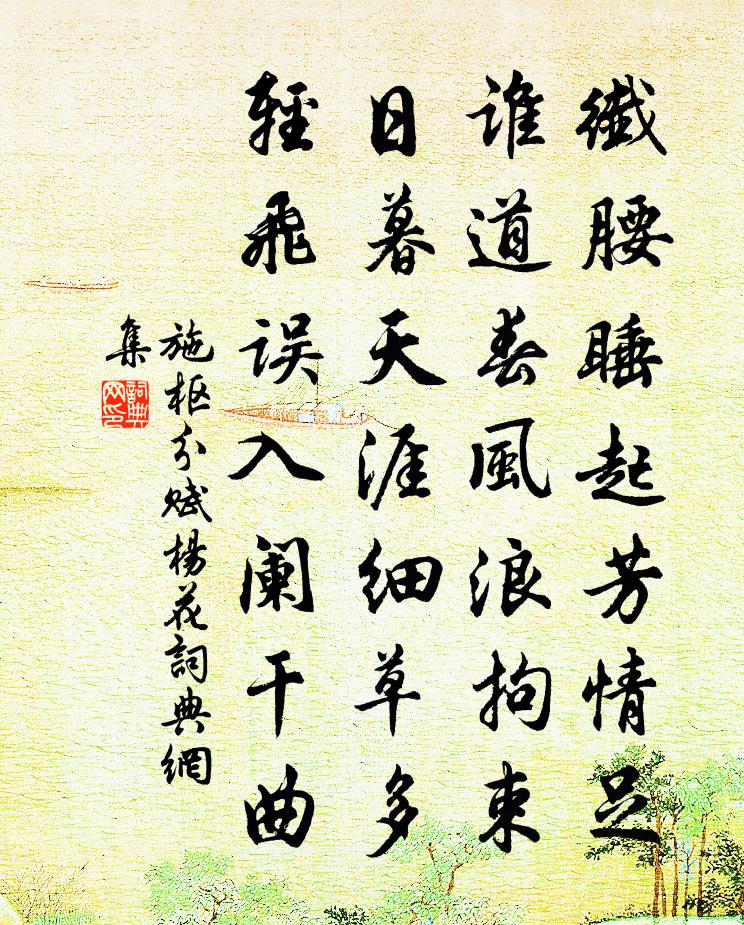 纖腰睡起芳情足
谁道春風浪拘束
日暮天涯细草多
輕飛误入阑干曲
施枢分赋楊花詞典網
集
詞典
网印